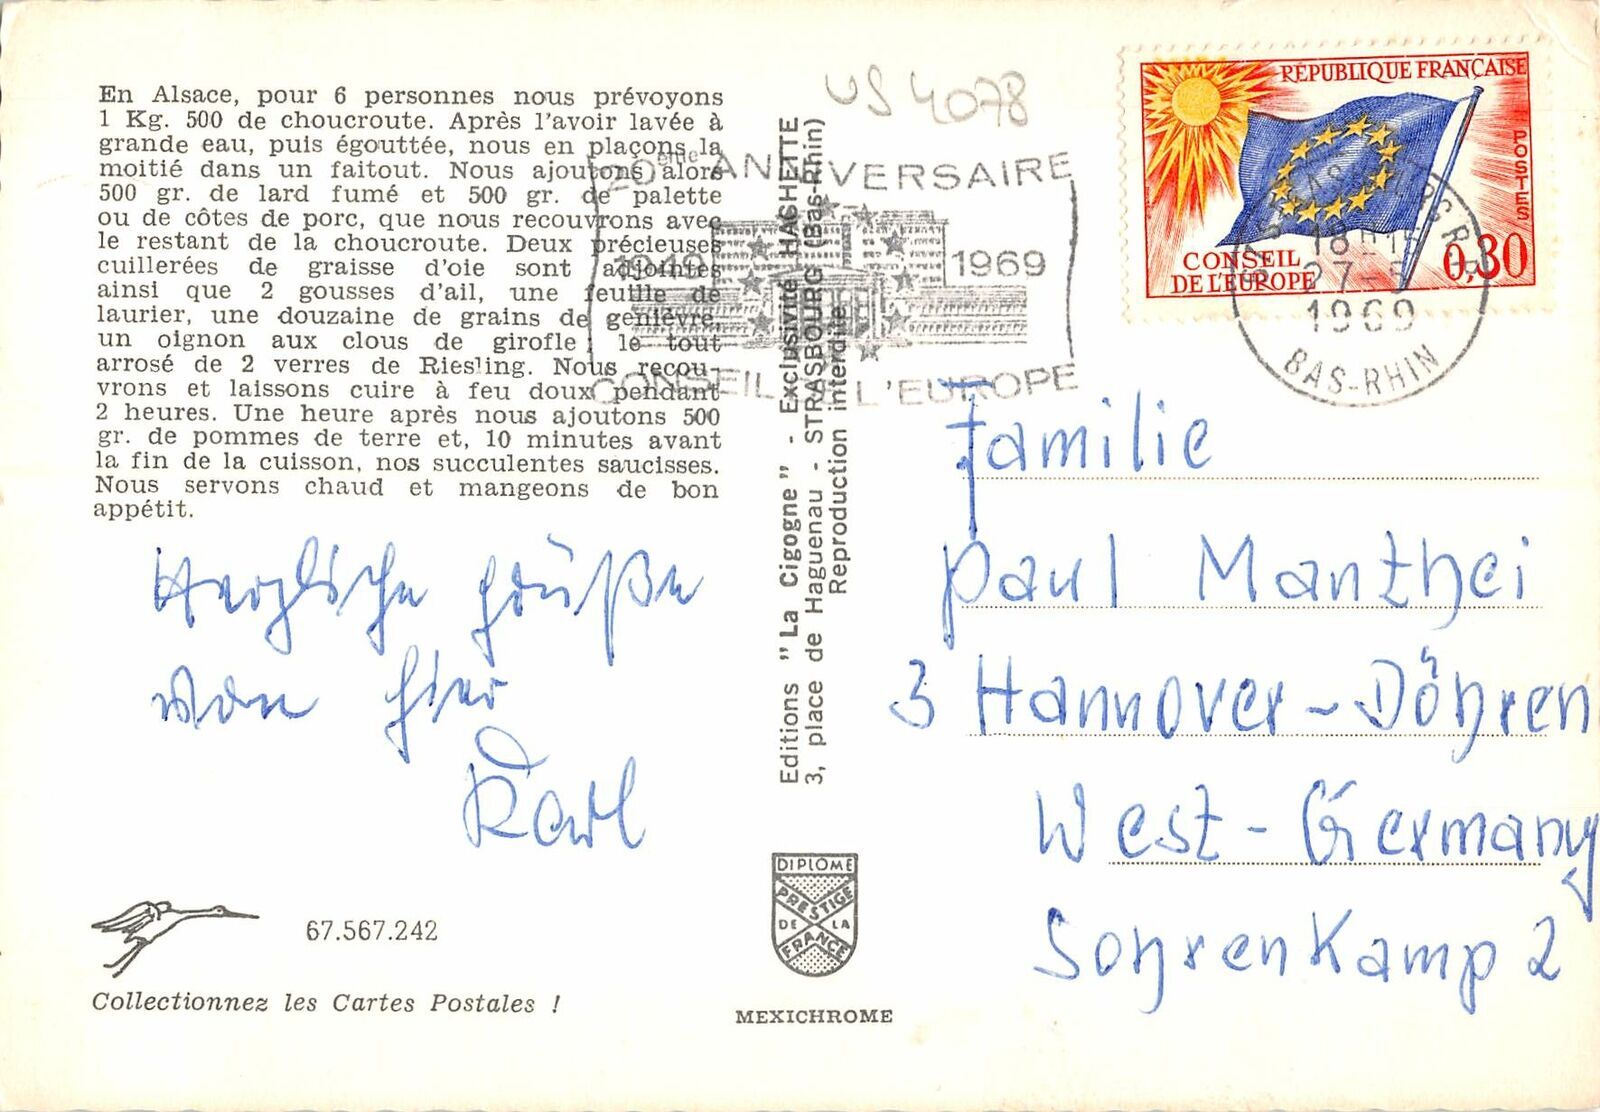 En Alsace, pour 6 personnes nous prévoyons
1 Kg. 500 de choucroute. Après l'avoir lavée à
grande eau, puis égouttée, nous en plaçons la
moitié dans un faitout. Nous ajoutons alors
500 gr. de lard fumé et 500 gr. de palette
ou de côtes de porc, que nous recouvrons avec
le restant de la choucroute. Deux précieuses
cuillerées de graisse d'oie sont adjointes
ainsi que 2 gousses d'ail, une feuille de
laurier, une douzaine de grains de genièvre,
un oignon aux clous de girofle ; le tout
arrosé de 2 verres de Riesling. Nous recou-
vrons et laissons cuire à feu doux pendant
2 heures. Une heure après nous ajoutons 500
gr. de pommes de terre et, 10 minutes avant
la fin de la cuisson, nos succulentes saucisses.
Nous servons chaud et mangeons de bon
appétit.
Herzliche Grüße
von hier
Karl
67.567.242
Collectionnez les Cartes Postales !
US 4078
20ème ANNIVERSAIRE
1949 1969
CONSEIL DE L'EUROPE
Editions "La Cigogne" - Exclusivité HACHETTE
3, place de Haguenau - STRASBOURG (Bas-Rhin)
Reproduction interdite
DIPLOME
PRESTIGE
DE LA
FRANCE
MEXICHROME
RÉPUBLIQUE FRANÇAISE
POSTES
CONSEIL
DE L'EUROPE
0,30
18H
27-
1969
BAS-RHIN
Familie
Paul Manthei
3 Hannover-Döhren
West-Germany
Sohrenkamp 2